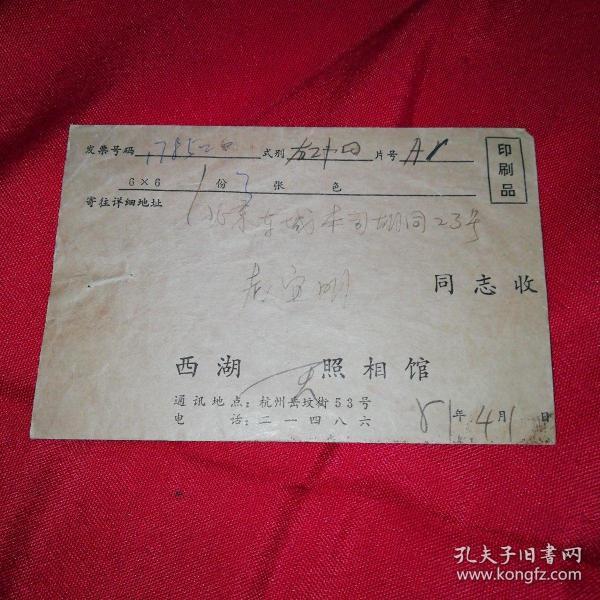 发票号码 178520 式别 片号 A1
印刷品
6×6 1份 3张 色
寄往详细地址 北京东城本司胡同23号
同志收
西湖 照相馆
通讯地点：杭州岳坟街53号
电 话：二一四八六
81年4月1日
孔夫子旧书网
www.kongfz.com